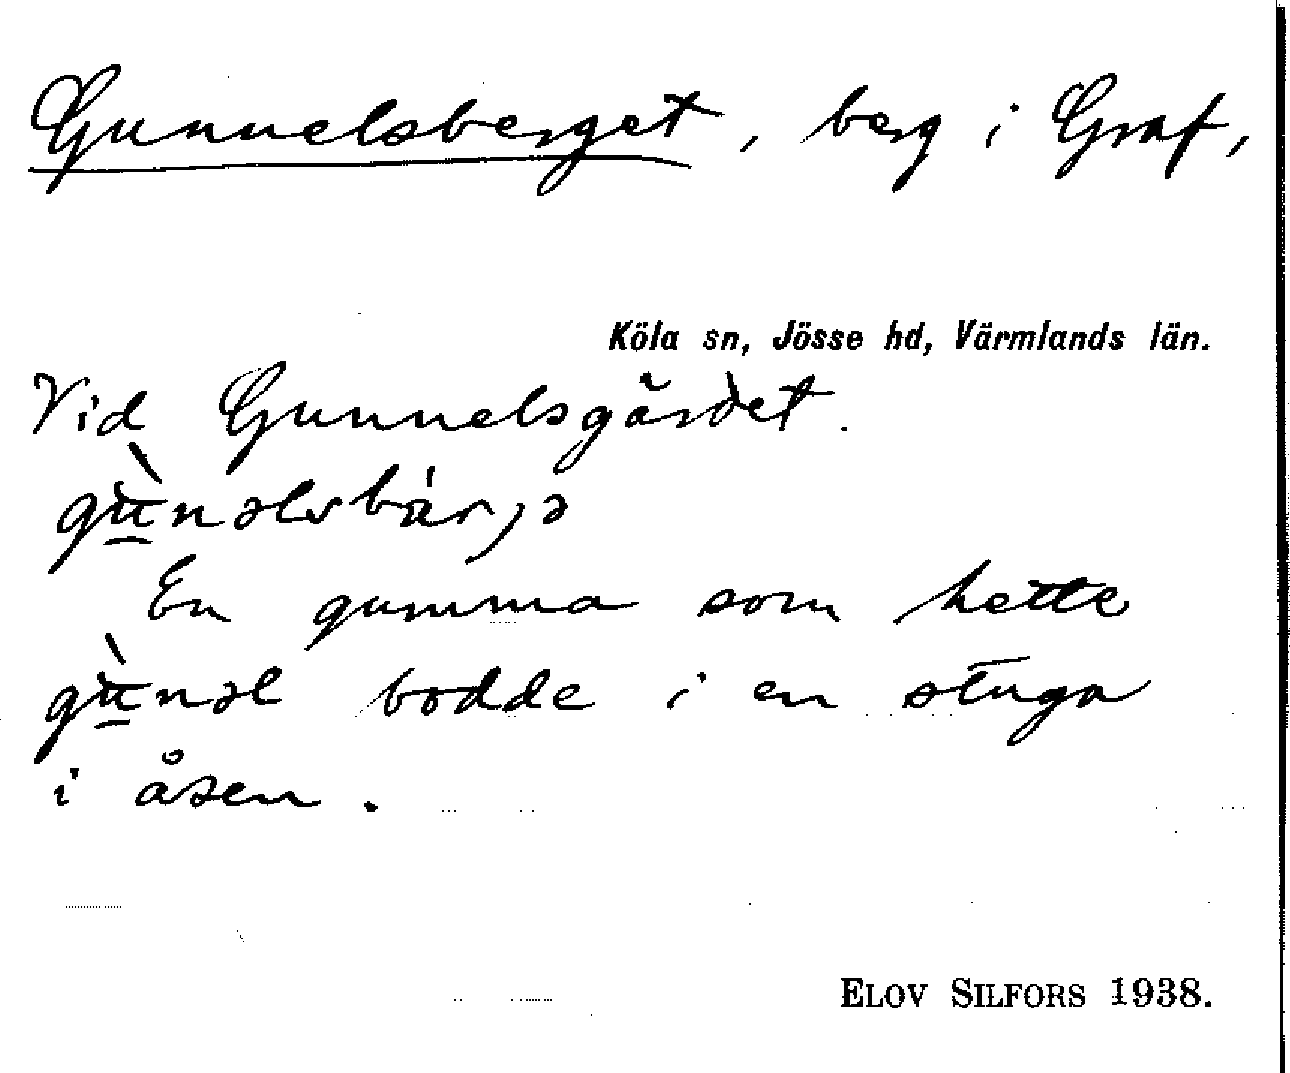 Gunnelsberget, berg i Graf,
Köla sn, Jösse hd, Värmlands län.
Vid Gunnelsgärdet.
gùnəlsbárjə
En gumma som hette
gùnəl bodde i en stuga
i åsen.
ELOV SILFORS 1938.